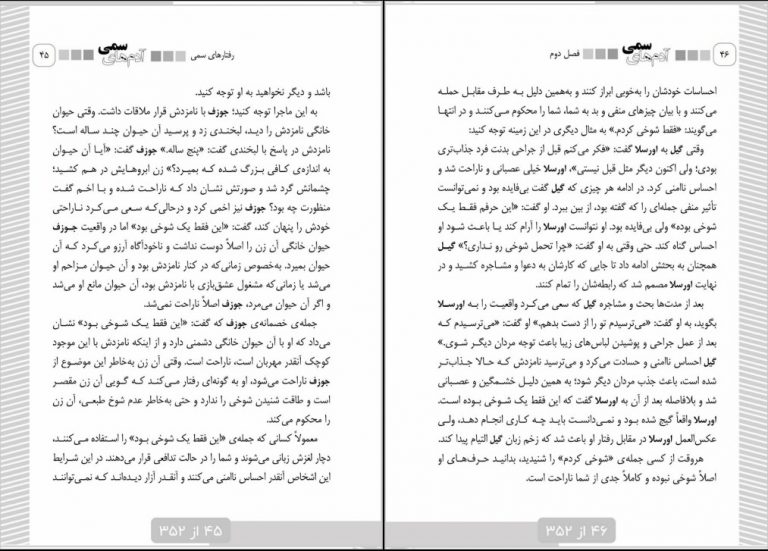 ۴۵
آدم‌های سمی
رفتارهای سمی
باشد و دیگر نخواهید به او توجه کنید.
به این ماجرا توجه کنید؛ جوزف با نامزدش قرار ملاقات داشت. وقتی حیوان
خانگی نامزدش را دید، لبخندی زد و پرسید آن حیوان چند ساله است؟
نامزدش در پاسخ با لبخندی گفت: «پنج ساله.» جوزف گفت: «آیا آن حیوان
به اندازه‌ی کافی بزرگ شده که بمیرد؟» زن ابروهایش در هم کشید؛
چشمانش گرد شد و صورتش نشان داد که ناراحت شده و با اخم گفت
منظورت چه بود؟ جوزف نیز اخمی کرد و درحالی‌که سعی می‌کرد ناراحتی
خودش را پنهان کند، گفت: «این فقط یک شوخی بود» اما در واقعیت جوزف
حیوان خانگی آن زن را اصلاً دوست نداشت و ناخودآگاه آرزو می‌کرد که آن
حیوان بمیرد. به‌خصوص زمانی‌که در کنار نامزدش بود و آن حیوان مزاحم او
می‌شد یا زمانی‌که مشغول عشق‌بازی با نامزدش بود، آن حیوان مانع او می‌شد
و اگر آن حیوان می‌مرد، جوزف اصلاً ناراحت نمی‌شد.
جمله‌ی خصمانه‌ی جوزف که گفت: «این فقط یک شوخی بود» نشان
می‌داد که او با آن حیوان خانگی دشمنی دارد و از اینکه نامزدش با این موجود
کوچک آنقدر مهربان است، ناراحت است. وقتی آن زن به‌خاطر این موضوع از
جوزف ناراحت می‌شود، او به گونه‌ای رفتار می‌کند که گویی آن زن مقصر
است و طاقت شنیدن شوخی را ندارد و حتی به‌خاطر عدم شوخ طبعی، آن زن
را محکوم می‌کند.
معمولاً کسانی که جمله‌ی «این فقط یک شوخی بود» را استفاده می‌کنند،
دچار لغزش زبانی می‌شوند و شما را در حالت تدافعی قرار می‌دهند. در این شرایط
این اشخاص آنقدر احساس ناامنی می‌کنند و آنقدر آزار دیده‌اند که نمی‌توانند
۴۵ از ۳۵۲
۴۶
آدم‌های سمی
فصل دوم
احساسات خودشان را به‌خوبی ابراز کنند و به‌همین دلیل به طرف مقابل حمله
می‌کنند و با بیان چیزهای منفی و بد به شما، شما را محکوم می‌کنند و در انتها
می‌گویند: «فقط شوخی کردم.» به مثال دیگری در این زمینه توجه کنید:
وقتی گیل به اورسلا گفت: «فکر می‌کنم قبل از جراحی بدنت فرد جذاب‌تری
بودی؛ ولی اکنون دیگر مثل قبل نیستی»، اورسلا خیلی عصبانی و ناراحت شد و
احساس ناامنی کرد. در ادامه هر چیزی که گیل گفت بی‌فایده بود و نمی‌توانست
تأثیر منفی جمله‌ای را که گفته بود، از بین ببرد. او گفت: «این حرفم فقط یک
شوخی بود» ولی بی‌فایده بود. او نتوانست اورسلا را آرام کند یا باعث شود او
احساس گناه کند. حتی وقتی به او گفت: «چرا تحمل شوخی رو نداری؟» گیل
همچنان به بحثش ادامه داد تا جایی که کارشان به دعوا و مشاجره کشید و در
نهایت اورسلا مصمم شد که رابطه‌شان را تمام کنند.
بعد از مدت‌ها بحث و مشاجره گیل که سعی می‌کرد واقعیت را به اورسلا
بگوید، به او گفت: «می‌ترسیدم تو را از دست بدهم.» او گفت: «می‌ترسیدم که
بعد از عمل جراحی و پوشیدن لباس‌های زیبا باعث توجه مردان دیگر شوی.»
گیل احساس ناامنی و حسادت می‌کرد و می‌ترسید نامزدش که حالا جذاب‌تر
شده است، باعث جذب مردان دیگر شود؛ به همین دلیل خشمگین و عصبانی
شد و بلافاصله بعد از آن به اورسلا گفت که این فقط یک شوخی بوده است.
اورسلا واقعاً گیج شده بود و نمی‌دانست باید چه کاری انجام دهد، ولی
عکس‌العمل اورسلا در مقابل رفتار او باعث شد که زخم زبان گیل التیام پیدا کند.
هروقت از کسی جمله‌ی «شوخی کردم» را شنیدید، بدانید حرف‌های او
اصلاً شوخی نبوده و کاملاً جدی از شما ناراحت است.
۴۶ از ۳۵۲